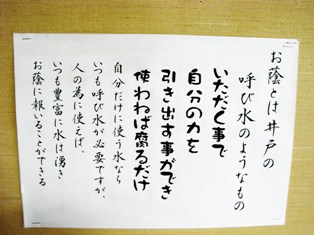 お蔭とは井戸の
呼び水のようなもの
いただく事で
自分の力を
引き出す事ができ
使わねば腐るだけ
自分だけに使う水なら
いつも呼び水が必要ですが、
人の為に使えば、
いつも豊富に水は湧き
お蔭に報いることができる